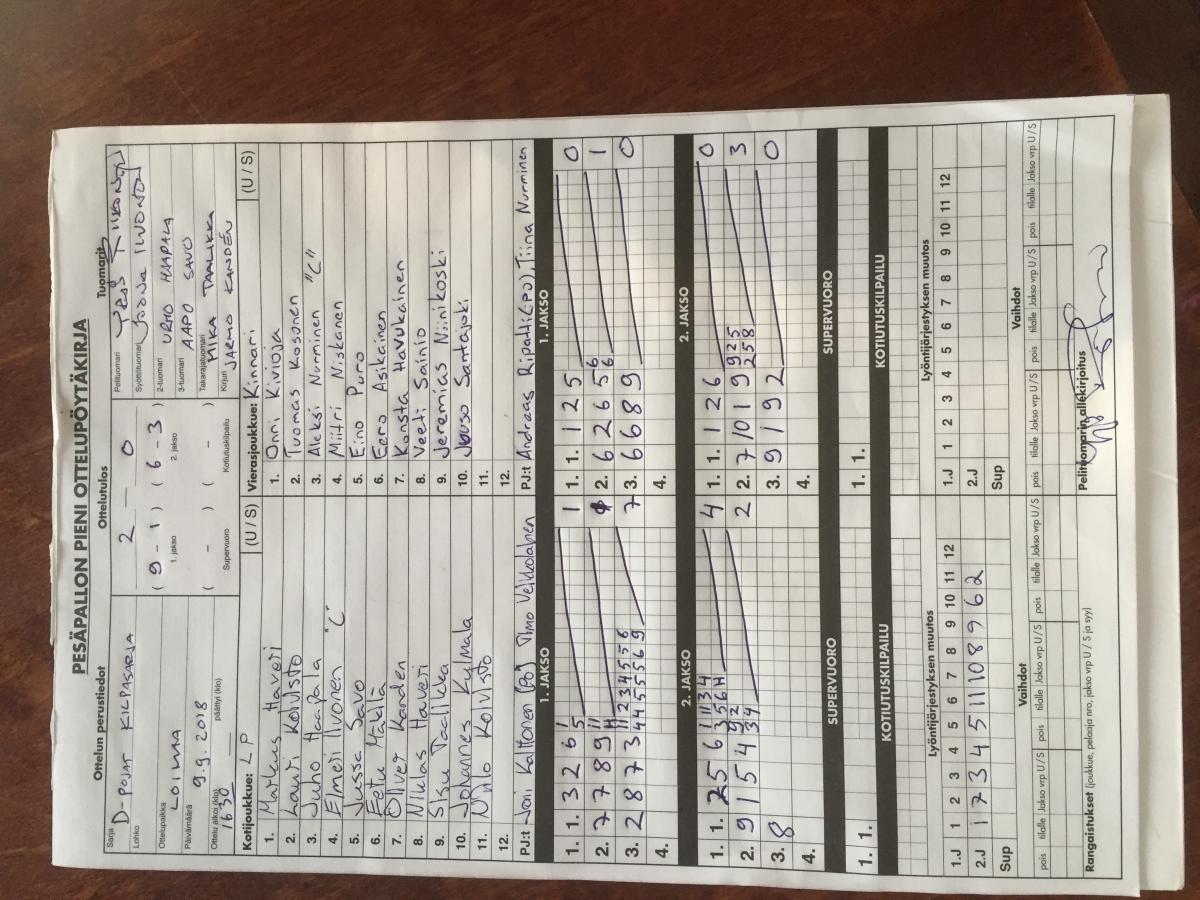 PESÄPALLON PIENI OTTELUPÖYTÄKIRJA
Ottelun perustiedot
Ottelutulos
Tuomarit
Sarja D-POJAT KILPASARJA
Lohko
Ottelupaikka
LOIMAA
Päivämäärä
9.9.2018
Ottelu alkoi (klo) päättyi (klo)
16 30
2 - 0
( 9 - 1 ) ( 6 - 3 )
1. jakso 2. jakso
( - ) ( - )
Supervuoro Kotiutuskilpailu
Pelituomari
Syöttötuomari
2-tuomari URHO HAAPALA
3-tuomari AAPO SAVO
Takarajatuomari MIKA TAALIKKA
Kirjuri JARMO KANDEN
Kotijoukkue: LP (U / S)
1. Markus Haveri
2. Lauri Koivisto
3. Juho Haapala
4. Elmeri Ilvonen "C"
5. Jussa Savo
6. Eetu Mäkilä
7. Oliver Kanden
8. Niklas Haveri
9. Sisu Taalikka
10. Johannes Kylmälä
11. Niilo Koivisto
12.
PJ:t Joni Kaltonen (PJ) Timo Veikkolainen
Vierasjoukkue: Kinnari (U / S)
1. Onni Kivioja
2. Tuomas Kosonen
3. Aleksi Nurminen "C"
4. Miitri Niskanen
5. Eino Puro
6. Eero Asikainen
7. Konsta Havukainen
8. Veeti Sainio
9. Jeremias Niinikoski
10. Juuso Santajoki
11.
12.
PJ:t Andraas Ripatti (PJ), Tiina Nurminen
1. JAKSO
1. 1. 3 2 6 1 5 1
2. 7 7 8 9 11 11 1
3. 2 8 7 3 11 2 3 4 5 5 6 4 4 5 5 5 6 9 7
4.
1. JAKSO
1. 1. 1 2 5 0
2. 6 2 6 5 6 6 1
3. 6 6 8 9 0
4.
2. JAKSO
1. 1. 2 5 6 1 11 3 4 3 5 6 11 4
2. 9 1 5 4 9 2 3 4 2
3. 8
4.
2. JAKSO
1. 1. 1 2 6 0
2. 7 10 1 9 9 2 5 2 5 8 3
3. 9 1 9 2 0
4.
SUPERVUORO
1. 1.
SUPERVUORO
1. 1.
KOTIUTUSKILPAILU
KOTIUTUSKILPAILU
Lyöntijärjestyksen muutos
1.J 1 2 3 4 5 6 7 8 9 10 11 12
2.J 1 7 3 4 5 11 10 8 9 6 2
Sup
Lyöntijärjestyksen muutos
1.J 1 2 3 4 5 6 7 8 9 10 11 12
2.J
Sup
Vaihdot
pois tilalle Jakso vrp U / S pois tilalle Jakso vrp U / S pois tilalle Jakso vrp U / S
Vaihdot
pois tilalle Jakso vrp U / S pois tilalle Jakso vrp U / S pois tilalle Jakso vrp U / S
Rangaistukset (joukkue, pelaaja nro, jakso vrp U / S ja syy)
Pelituomarin allekirjoitus